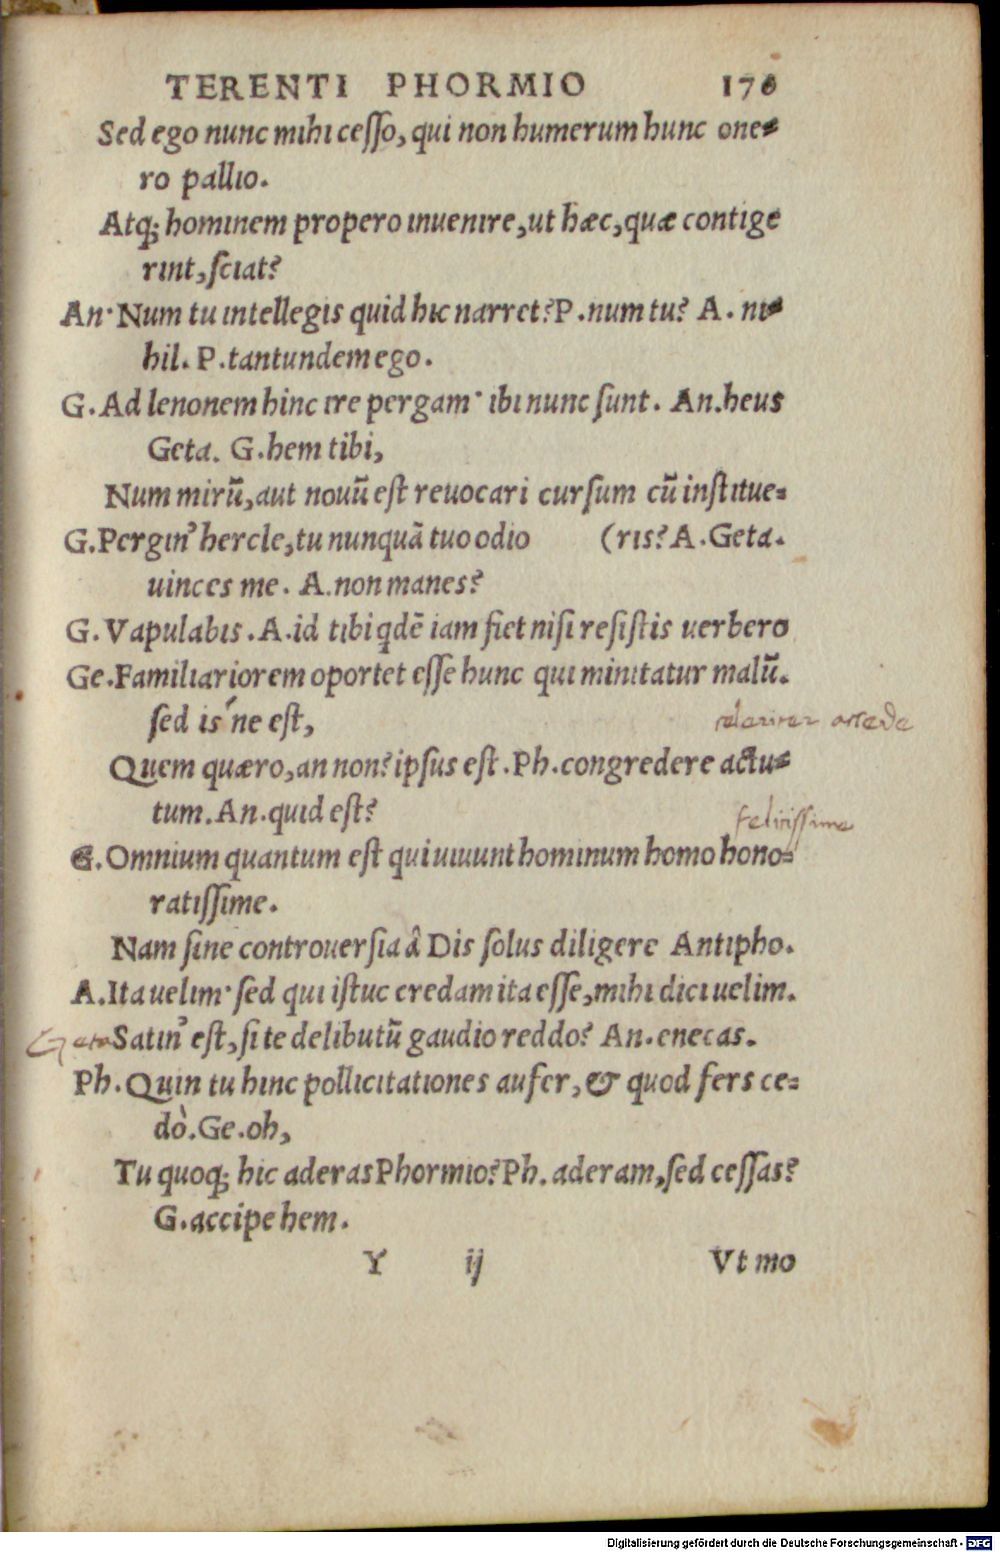 TERENTI PHORMIO 176
Sed ego nunc mihi cesso, qui non humerum hunc one=
ro pallio.
Atq; hominem propero inuenire, ut hæc, quæ contige
rint, sciat?
An· Num tu intellegis quid hic narret? P. num tu? A. ni=
hil. P. tantundem ego.
G. Ad lenonem hinc ire pergam· ibi nunc sunt. An. heus
Geta. G. hem tibi,
Num mirũ, aut nouũ est reuocari cursum cũ institue=
G. Pergin' hercle, tu nunquã tuo odio (ris? A. Geta.
uinces me. A. non manes?
G. Vapulabis. A. id tibi qdẽ iam fiet nisi resistis uerbero
Ge. Familiariorem oportet esse hunc qui minitatur malũ.
sed is'ne est,
accede
Quem quæro, an non? ipsus est. Ph. congredere actu=
tum. An. quid est?
felicissime
G. Omnium quantum est qui uiuunt hominum homo hono=
ratissime.
Nam sine controuersia â Dis solus diligere Antipho.
A. Ita uelim· sed qui istuc credam ita esse, mihi dici uelim.
Geta Satin' est, si te delibutũ gaudio reddo? An. enecas.
Ph. Quin tu hinc pollicitationes aufer, & quod fers ce=
dò. Ge. oh,
Tu quoq; hic aderas Phormio? Ph. aderam, sed cessas?
G. accipe hem.
Y ij Vt mo
Digitalisierung gefördert durch die Deutsche Forschungsgemeinschaft - DFG